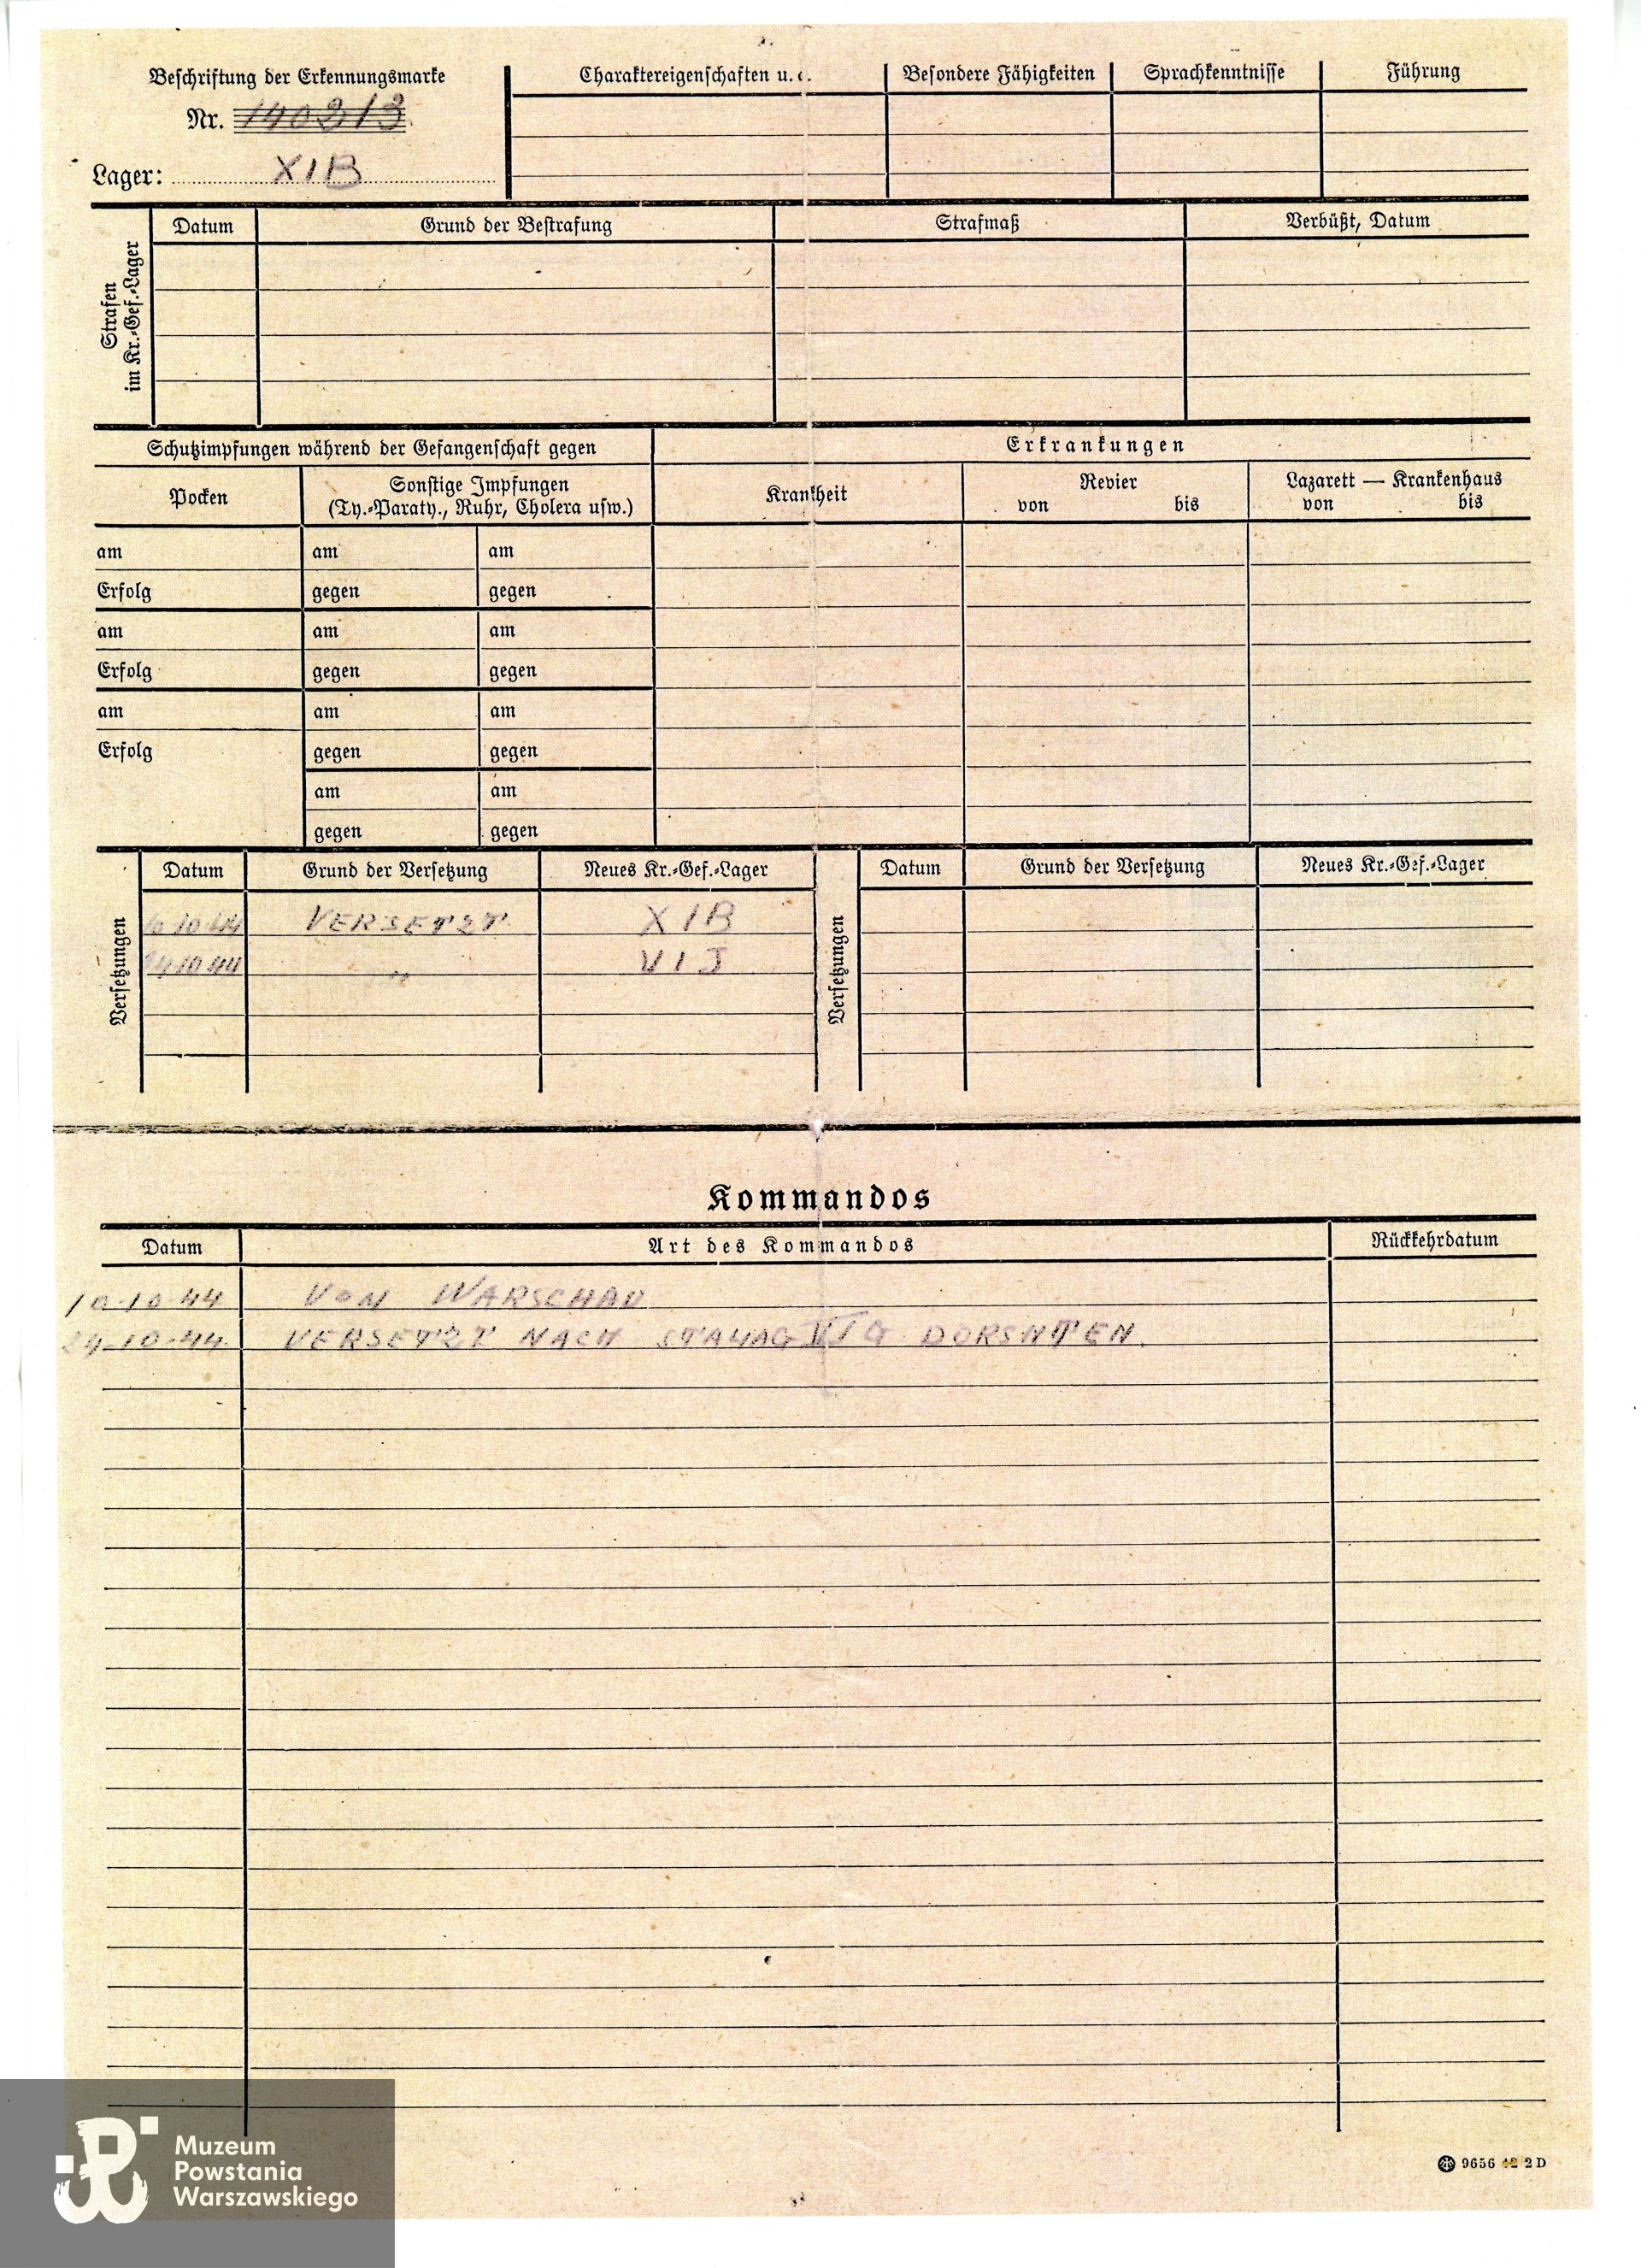 Beschriftung der Erkennungsmarke
Nr. 140213
Lager: XIB
Charaktereigenschaften u.
Besondere Fähigkeiten
Sprachkenntnisse
Führung
Strafen
im Kr.-Gef.-Lager
Datum
Grund der Bestrafung
Strafmaß
Verbüßt, Datum
Schutzimpfungen während der Gefangenschaft gegen
Erkrankungen
Pocken
Sonstige Impfungen
(Ty.-Paraty., Ruhr, Cholera usw.)
Krankheit
Revier
von bis
Lazarett — Krankenhaus
von bis
am am am
Erfolg gegen gegen
am am am
Erfolg gegen gegen
am am am
Erfolg gegen gegen
am am
gegen gegen
Versetzungen
Datum Grund der Versetzung Neues Kr.-Gef.-Lager
10 44 VERSETZT XIB
10 44 " VI J
Versetzungen
Datum Grund der Versetzung Neues Kr.-Gef.-Lager
Kommandos
Datum Art des Kommandos Rückkehrdatum
10-10-44 VON WARSCHAU
24-10-44 VERSETZT NACH STALAG VI G
9656 42 2 D
Muzeum
Powstania
Warszawskiego